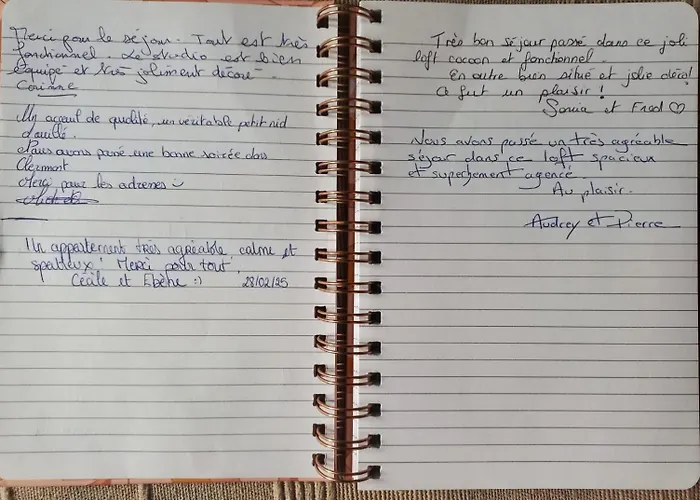 Merci pour le séjour. Tout est très
fonctionnel. Le studio est bien
équipé et très joliment décoré.
Corinne
Un acceuil de qualité, un véritable petit nid
douillé.
Nous avons passé une bonne soirée dans
Clermont
Merci pour les adresses
Un appartement très agréable calme et
spatieux ! Merci pour tout.
Cécile et Ebène :) 28/02/25
Très bon séjour passé dans ce joli
loft cocoon et fonctionnel.
En outre bien situé et jolie déco!
Ce fut un plaisir !
Sonia et Fred ♡
Nous avons passé un très agréable
séjour dans ce loft spacieux
et superbement agencé.
Au plaisir.
Audrey et Pierre